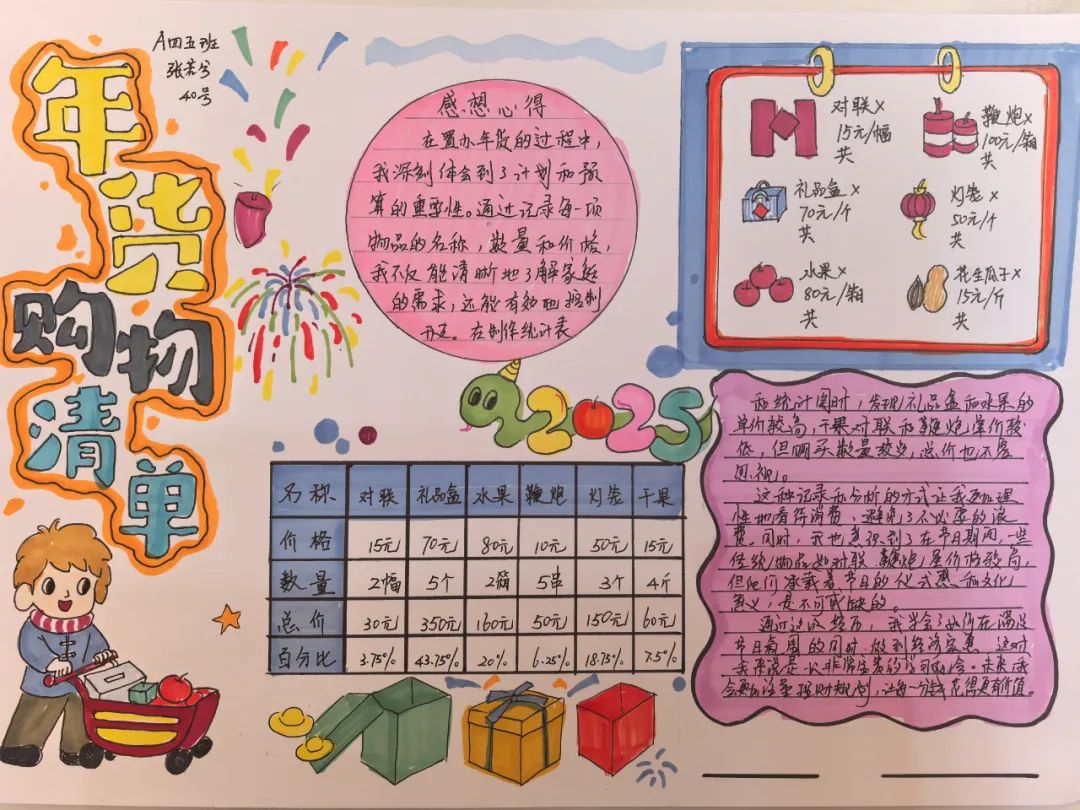 年货购物清单
A四五班
张若兮
40号
感想心得
在置办年货的过程中,
我深刻体会到了计划和预
算的重要性。通过记录每一项
物品的名称,数量和价格,
我不仅能清晰地了解家庭
的需求,还能有效地控制
开支。在制作统计表
对联×
15元/幅
共
鞭炮×
100元/箱
共
礼品盒×
70元/个
共
灯笼×
50元/个
共
水果×
80元/箱
共
花生瓜子×
15元/斤
共
2025
名称 对联 礼品盒 水果 鞭炮 灯笼 干果
价格 15元 70元 80元 10元 50元 15元
数量 2幅 5个 2箱 5串 3个 4斤
总价 30元 350元 160元 50元 150元 60元
百分比 3.75% 43.75% 20% 6.25% 18.75% 7.5%
和统计图时,发现礼品盒和水果的
单价较高,干果对联和鞭炮单价较
低,但购买数量较多,总价也不容
忽视。
这种记录和分析的方式让我更加理
性地看待消费,避免了不必要的浪
费。同时,我也意识到了在节日期间,一些
传统物品如对联、鞭炮,虽价格较高,
但他们承载着节日的仪式感和文化
意义,是不可或缺的。
通过这次经历,我学会了如何在满足
节日氛围的同时,做到经济实惠,这对
我来说是一次非常宝贵的学习机会。未来,我
会更加注重理财规划,让每一分钱花得更有价值。